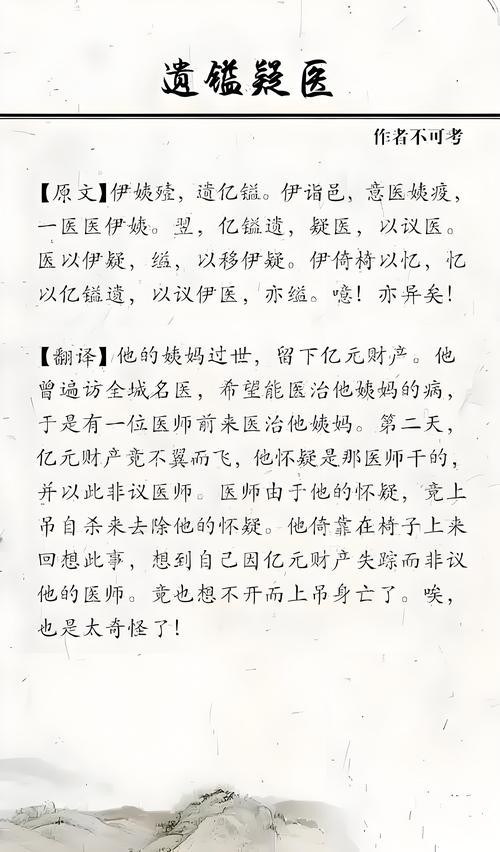 遗镒疑医
作者不可考
【原文】伊姨殪，遗亿镒。伊诣邑，意医姨疫，
一医医伊姨。翌，亿镒遗，疑医，以议医。
医以伊疑，缢，以移伊疑。伊倚椅以忆，忆
以亿镒遗，以议伊医，亦缢。噫！亦异矣！
【翻译】他的姨妈过世，留下亿元财产。他
曾遍访全城名医，希望能医治他姨妈的病，
于是有一位医师前来医治他姨妈。第二天，
亿元财产竟不翼而飞，他怀疑是那医师干的，
并以此非议医师。医师由于他的怀疑，竟上
吊自杀来去除他的怀疑。他倚靠在椅子上来
回想此事，想到自己因亿元财产失踪而非议
他的医师。竟也想不开而上吊身亡了。唉，
也是太奇怪了！